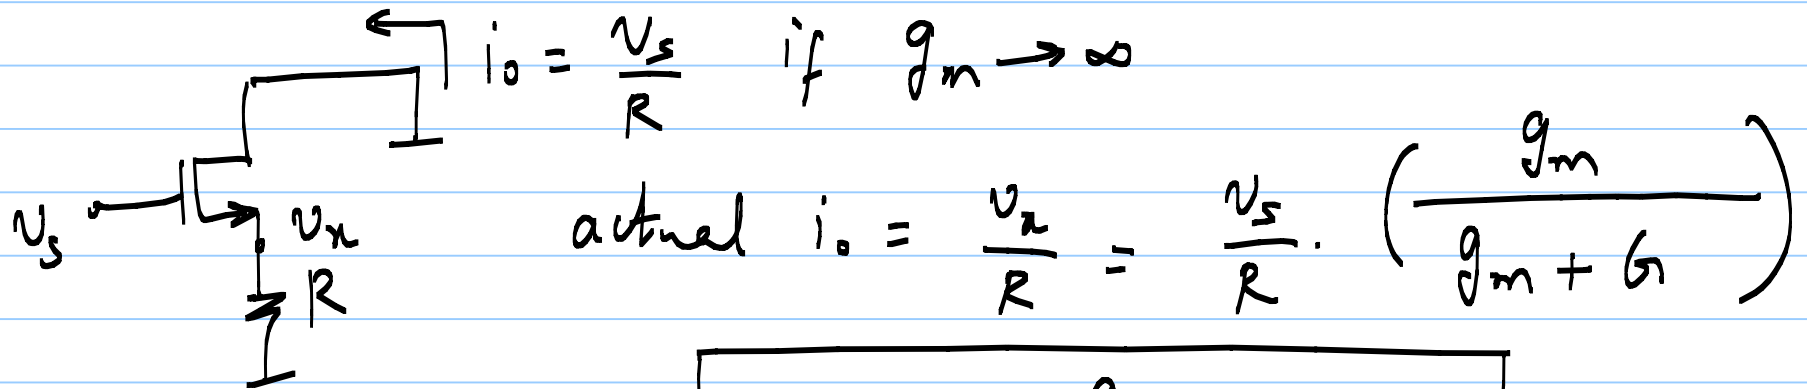 i₀ = vₛ/R if gₘ → ∞
vₛ vₓ actual i₀ = vₓ/R = vₛ/R · (gₘ/(gₘ + G))
R